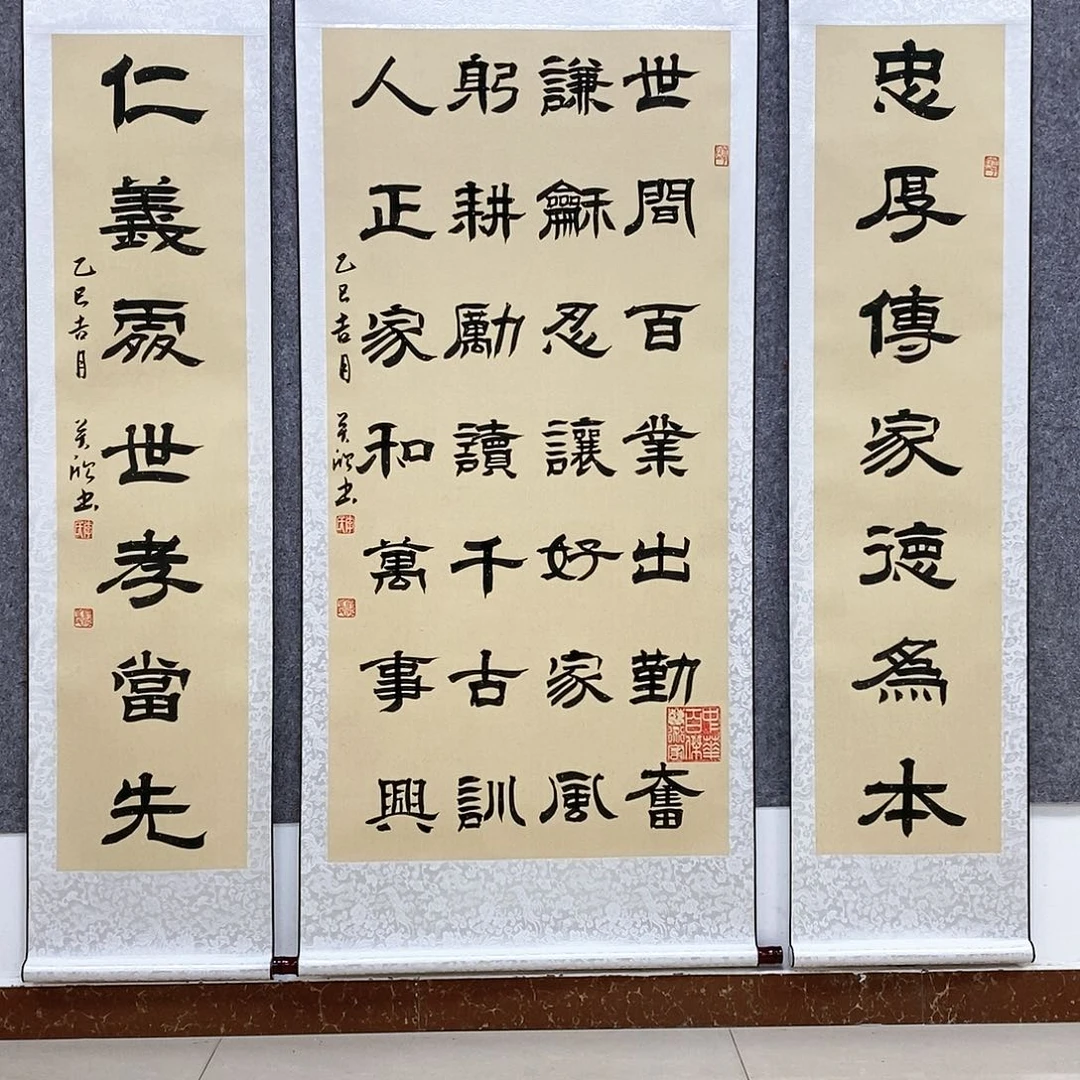 忠厚傳家德為本
世間百業出勤奮
謙龢忍讓好家風
躬耕勵讀千古訓
人正家和萬事興
乙巳吉月 欣书
仁義處世孝當先
乙巳吉月 欣书